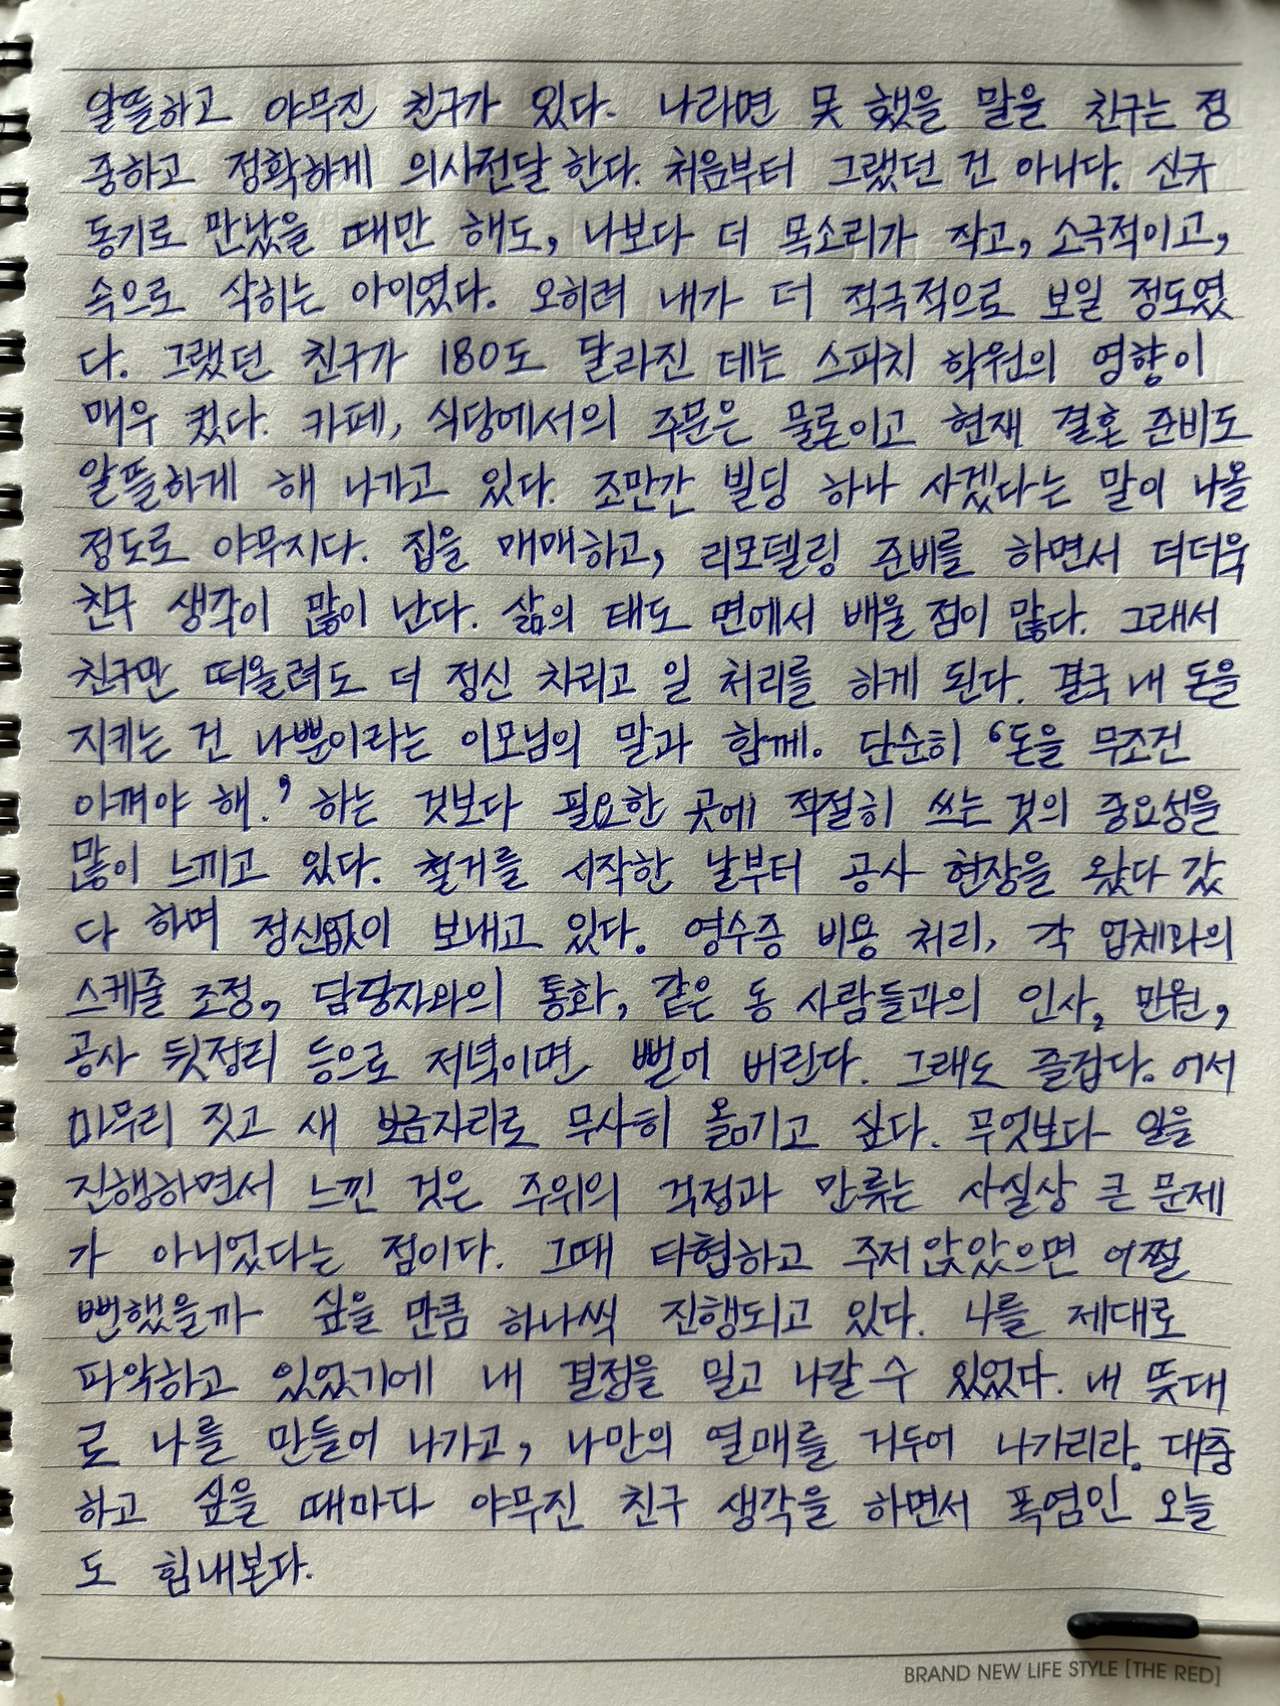 알뜰하고 야무진 친구가 있다. 나라면 못 했을 말을 친구는 정
중하고 정확하게 의사전달 한다. 처음부터 그랬던 건 아니다. 신규
동기로 만났을 때만 해도, 나보다 더 목소리가 작고, 소극적이고,
속으로 삭히는 아이였다. 오히려 내가 더 적극적으로 보일 정도였
다. 그랬던 친구가 180도 달라진 데는 스피치 학원의 영향이
매우 컸다. 카페, 식당에서의 주문은 물론이고 현재 결혼 준비도
알뜰하게 해 나가고 있다. 조만간 빌딩 하나 사겠다는 말이 나올
정도로 야무지다. 집을 매매하고, 리모델링 준비를 하면서 더더욱
친구 생각이 많이 난다. 삶의 태도 면에서 배울 점이 많다. 그래서
친구만 떠올려도 더 정신 차리고 일 처리를 하게 된다. 결국 내 돈을
지키는 건 나뿐이라는 이모님의 말과 함께. 단순히 '돈을 무조건
아껴야 해.' 하는 것보다 필요한 곳에 적절히 쓰는 것의 중요성을
많이 느끼고 있다. 철거를 시작한 날부터 공사 현장을 왔다 갔
다 하며 정신없이 보내고 있다. 영수증 비용 처리, 각 업체와의
스케줄 조정, 담당자와의 통화, 같은 동 사람들과의 인사, 민원,
공사 뒷정리 등으로 저녁이면 뻗어 버린다. 그래도 즐겁다. 어서
마무리 짓고 새 보금자리로 무사히 옮기고 싶다. 무엇보다 일을
진행하면서 느낀 것은 주위의 걱정과 만류는 사실상 큰 문제
가 아니었다는 점이다. 그때 타협하고 주저앉았으면 어쩔
뻔했을까 싶을 만큼 하나씩 진행되고 있다. 나를 제대로
파악하고 있었기에 내 결정을 밀고 나갈 수 있었다. 내 뜻대
로 나를 만들어 나가고, 나만의 열매를 거두어 나가리라. 대충
하고 싶을 때마다 야무진 친구 생각을 하면서 폭염인 오늘
도 힘내본다.
BRAND NEW LIFE STYLE [THE RED]